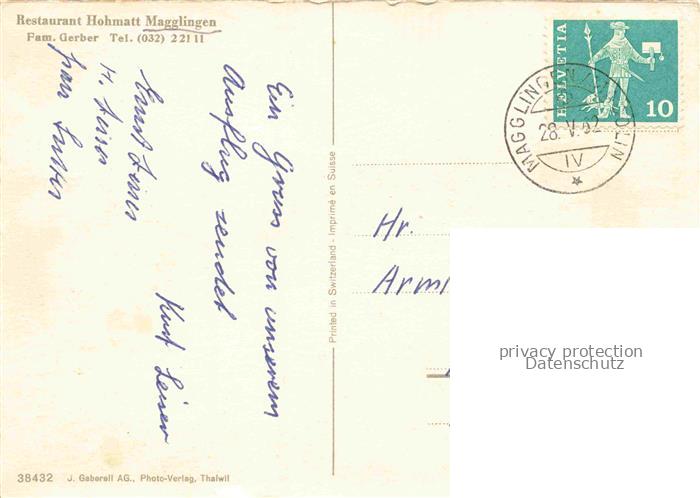 Restaurant Hohmatt Magglingen
Fam. Gerber Tel. (032) 2 21 11
Ein Gruss von unserem
Ausflug sendet
Kurt Leiser
Ernst
H.
Printed in Switzerland - Imprimé en Suisse
HELVETIA
10
MAGGLINGEN
28.V.62
IV
Hr.
Armi
privacy protection
Datenschutz
38432 J. Gaberell AG., Photo-Verlag, Thalwil